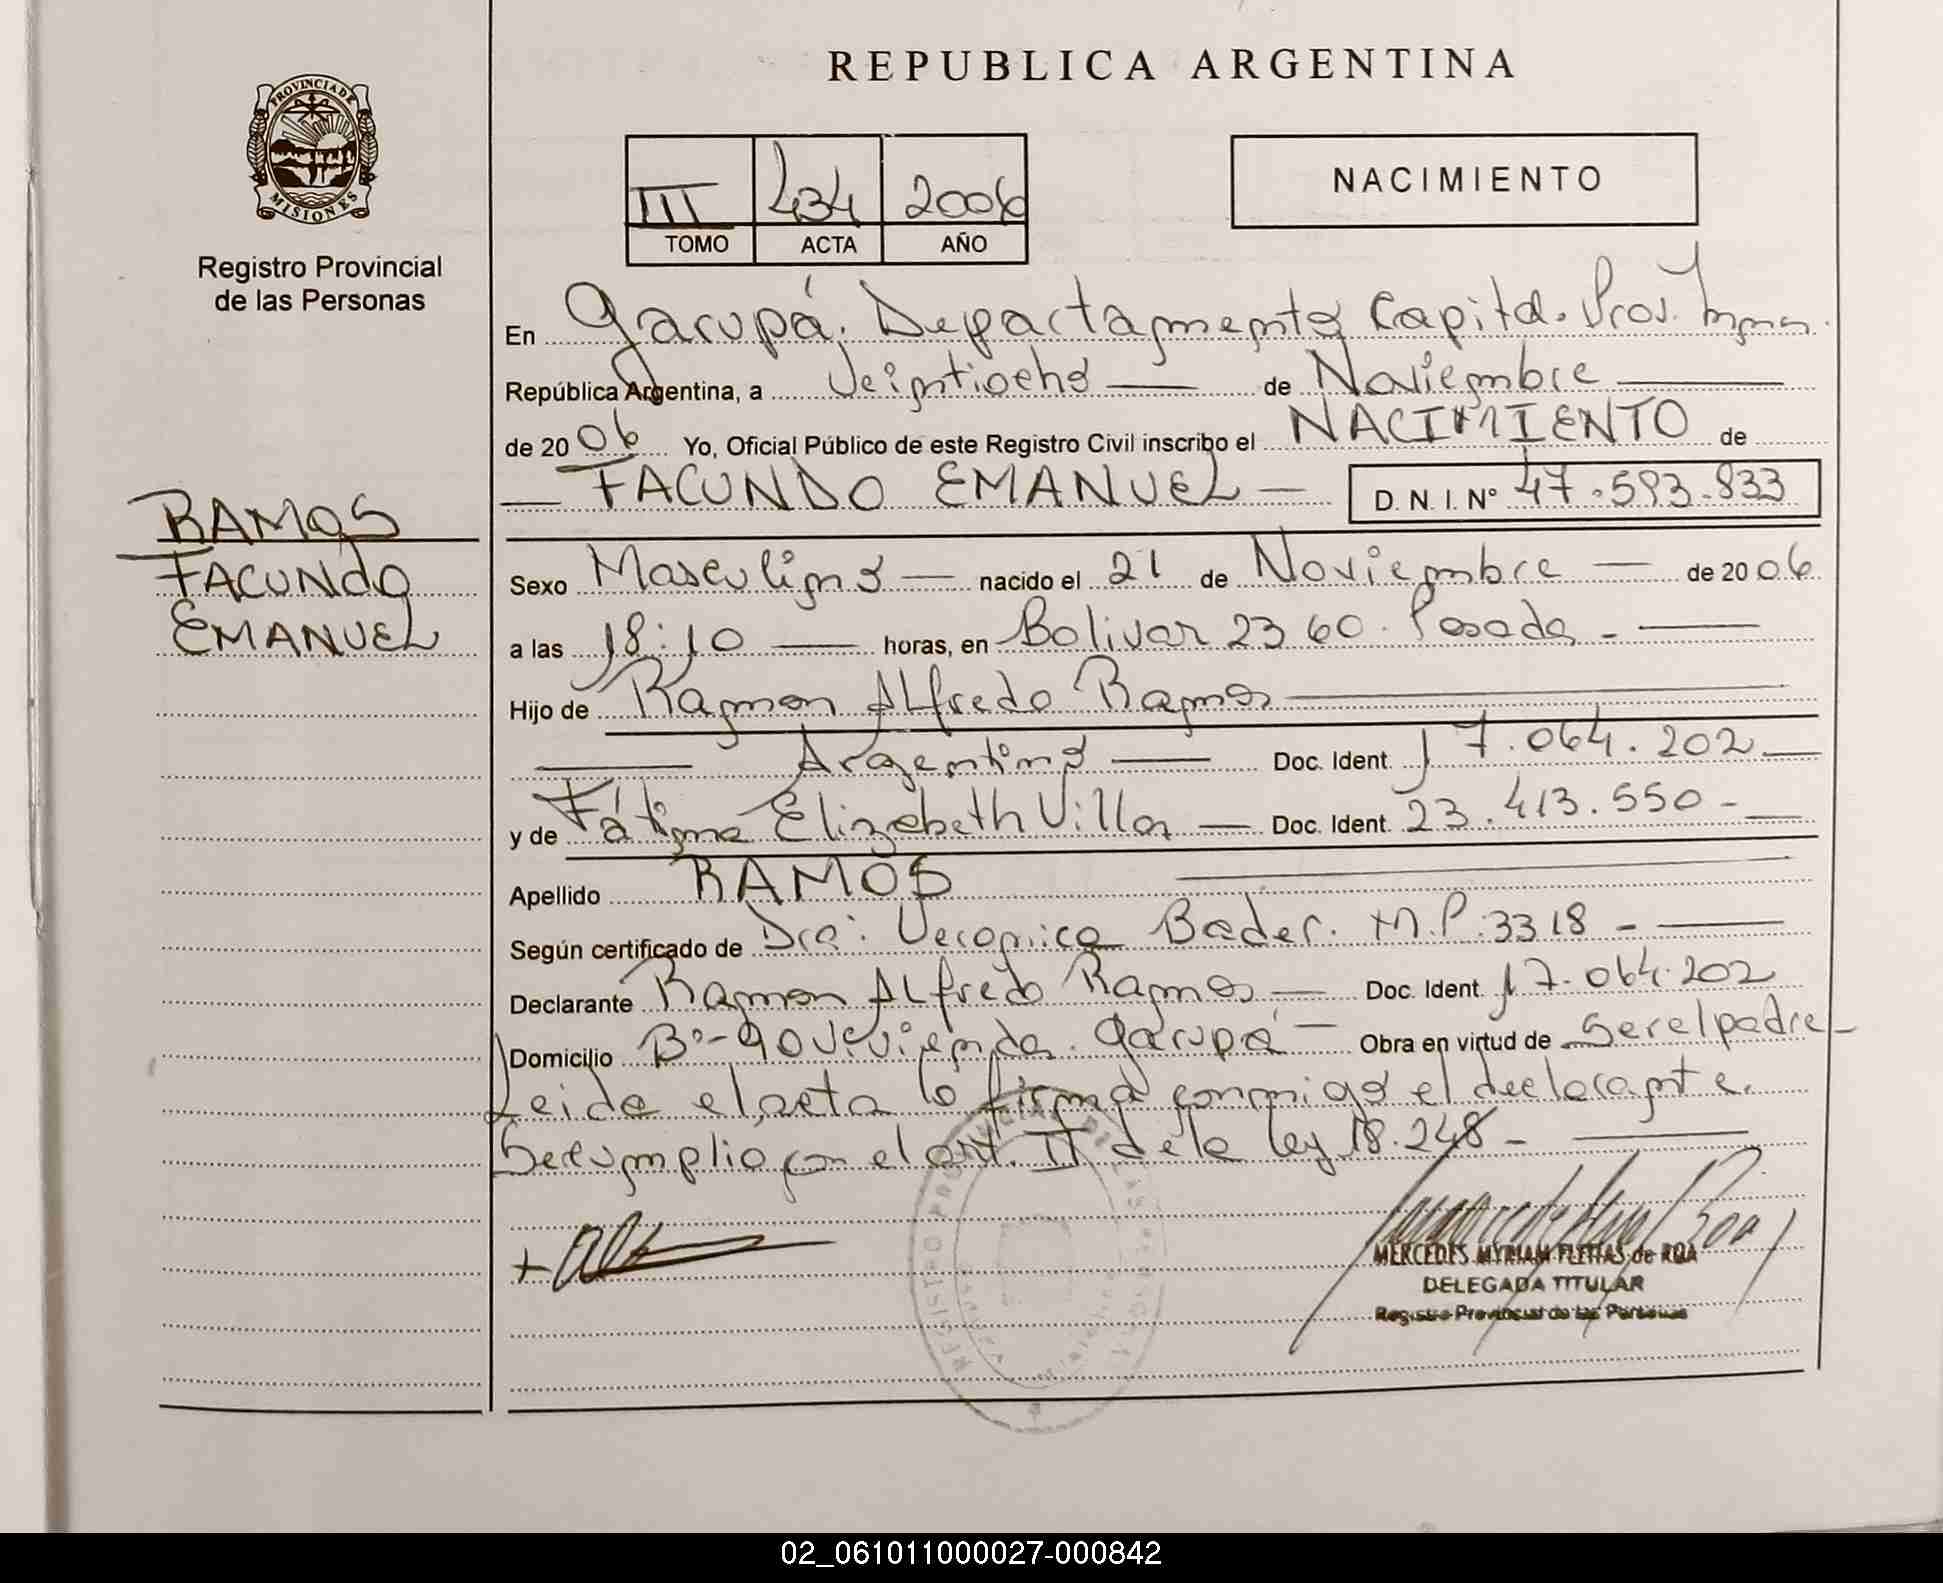 REPUBLICA ARGENTINA
PROVINCIA DE MISIONES
Registro Provincial
de las Personas
III 434 2006
TOMO ACTA AÑO
NACIMIENTO
En Garupá. Departamento Capital. Prov. Mnes.
República Argentina, a Veintiocho de Noviembre
de 2006 Yo, Oficial Público de este Registro Civil inscribo el NACIMIENTO de
FACUNDO EMANUEL D. N. I. Nº 47.593.833
RAMOS
FACUNDO
EMANUEL
Sexo Masculino nacido el 21 de Noviembre de 2006
a las 18:10 horas, en Bolivar 2360. Posadas -
Hijo de Ramon Alfredo Ramos
Argentino Doc. Ident. 17.064.202
y de Fátima Elizabeth Villar Doc. Ident. 23.413.550 -
Apellido RAMOS
Según certificado de Dra: Veronica Bader. M.P:3318 -
Declarante Ramon Alfredo Ramos Doc. Ident. 17.064.202
Domicilio Bº-90 Viviendas. Garupá Obra en virtud de Ser el padre -
Leida el acta lo firma conmigo el declarante.
Se cumplio con el art. II de la ley 18.248 -
MERCEDES MYRIAM FLEITAS de ROA
DELEGADA TITULAR
Registro Provincial de las Personas
02_061011000027-000842